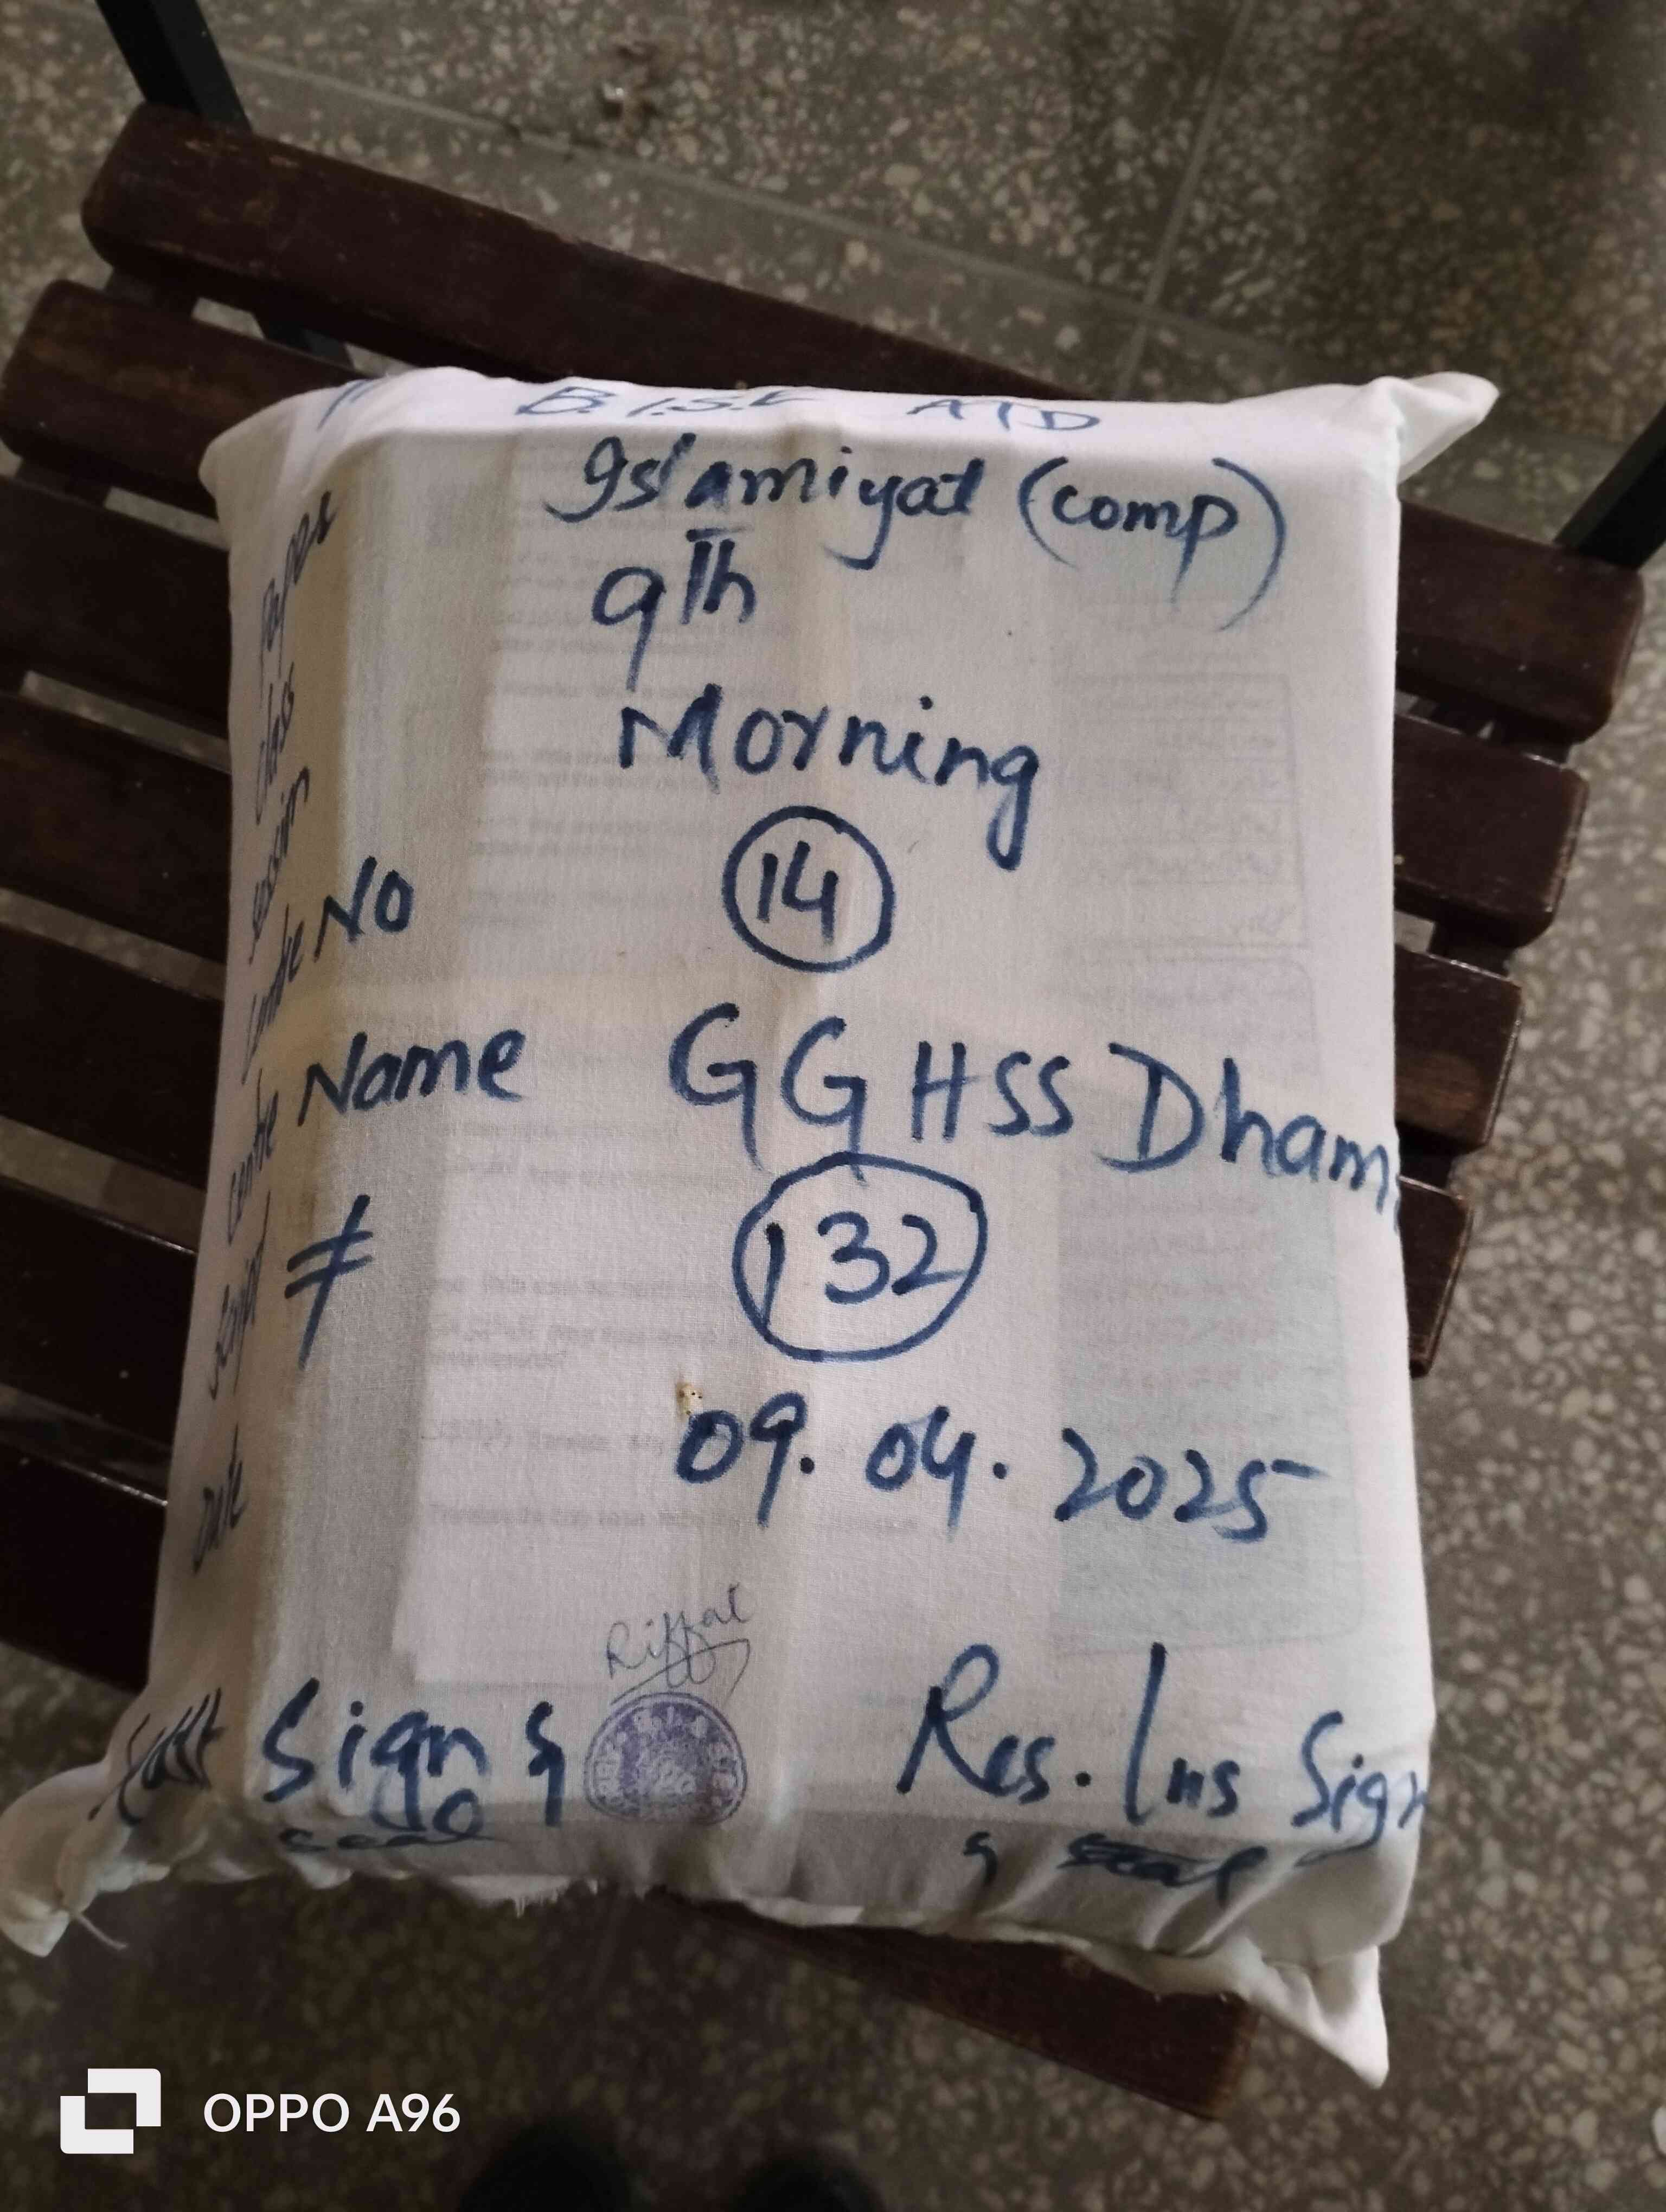 B.I.S.E ATD
Paper Islamiyat (comp)
class 9Th
session Morning
Centre No 14
Centre Name GGHSS Dham
Script # 132
Date 09.04.2025
Riffat
Sign & Res. Ins Sign
seal & seal
OPPO A96